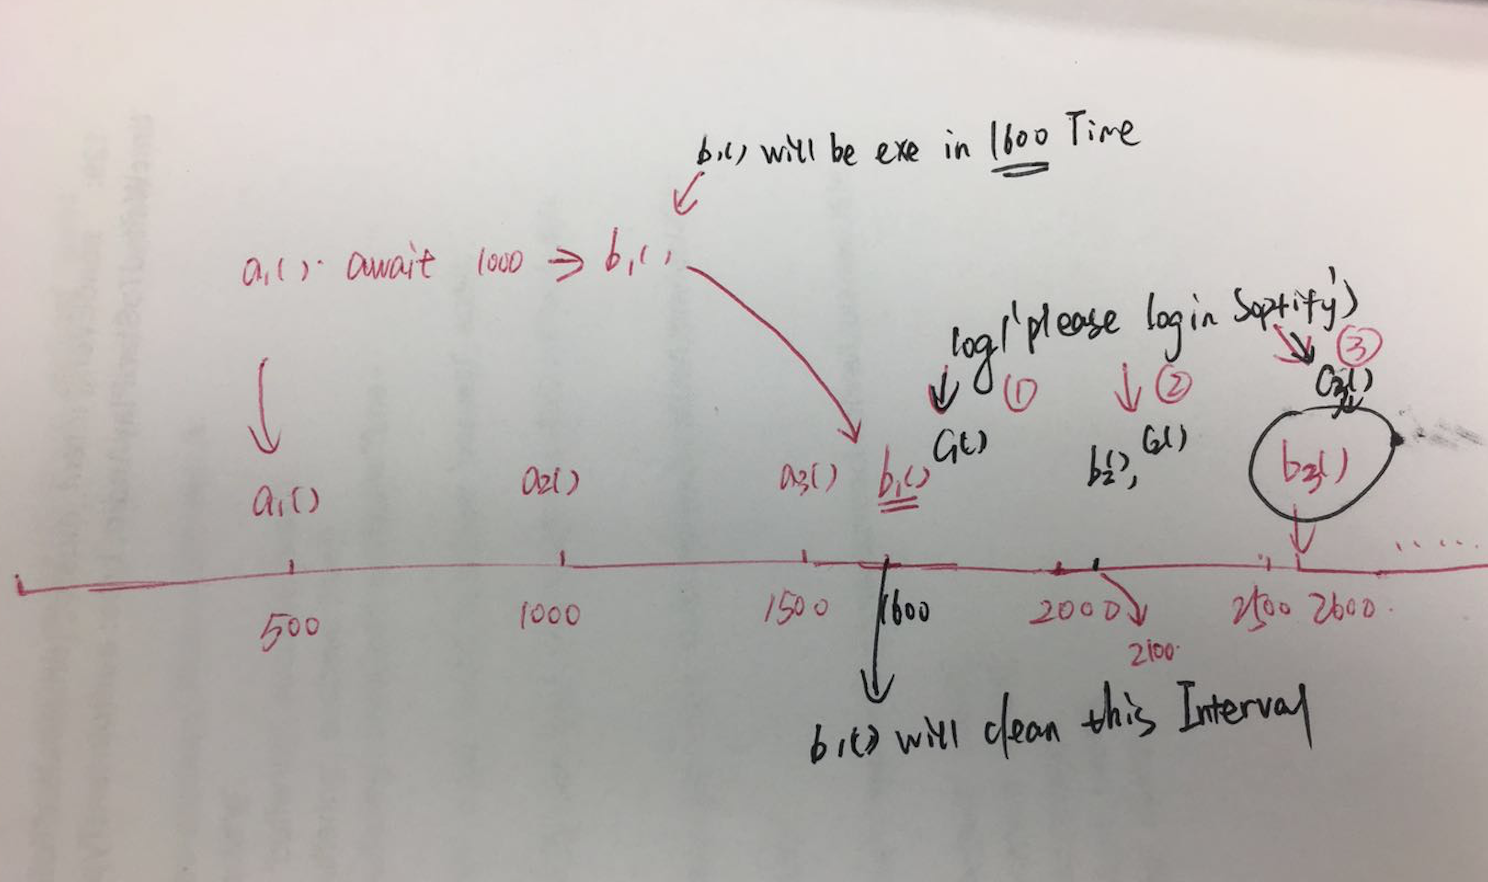 b1() will be exe in 1600 Time
a1() await 1000 → b1()
log('please login Soptify')
① ② ③
C1() C2() C3()
a1() a2() a3() b1() b2(), b3()
500 1000 1500 1600 2000 2100 2500 2600
b1() will clean this Interval